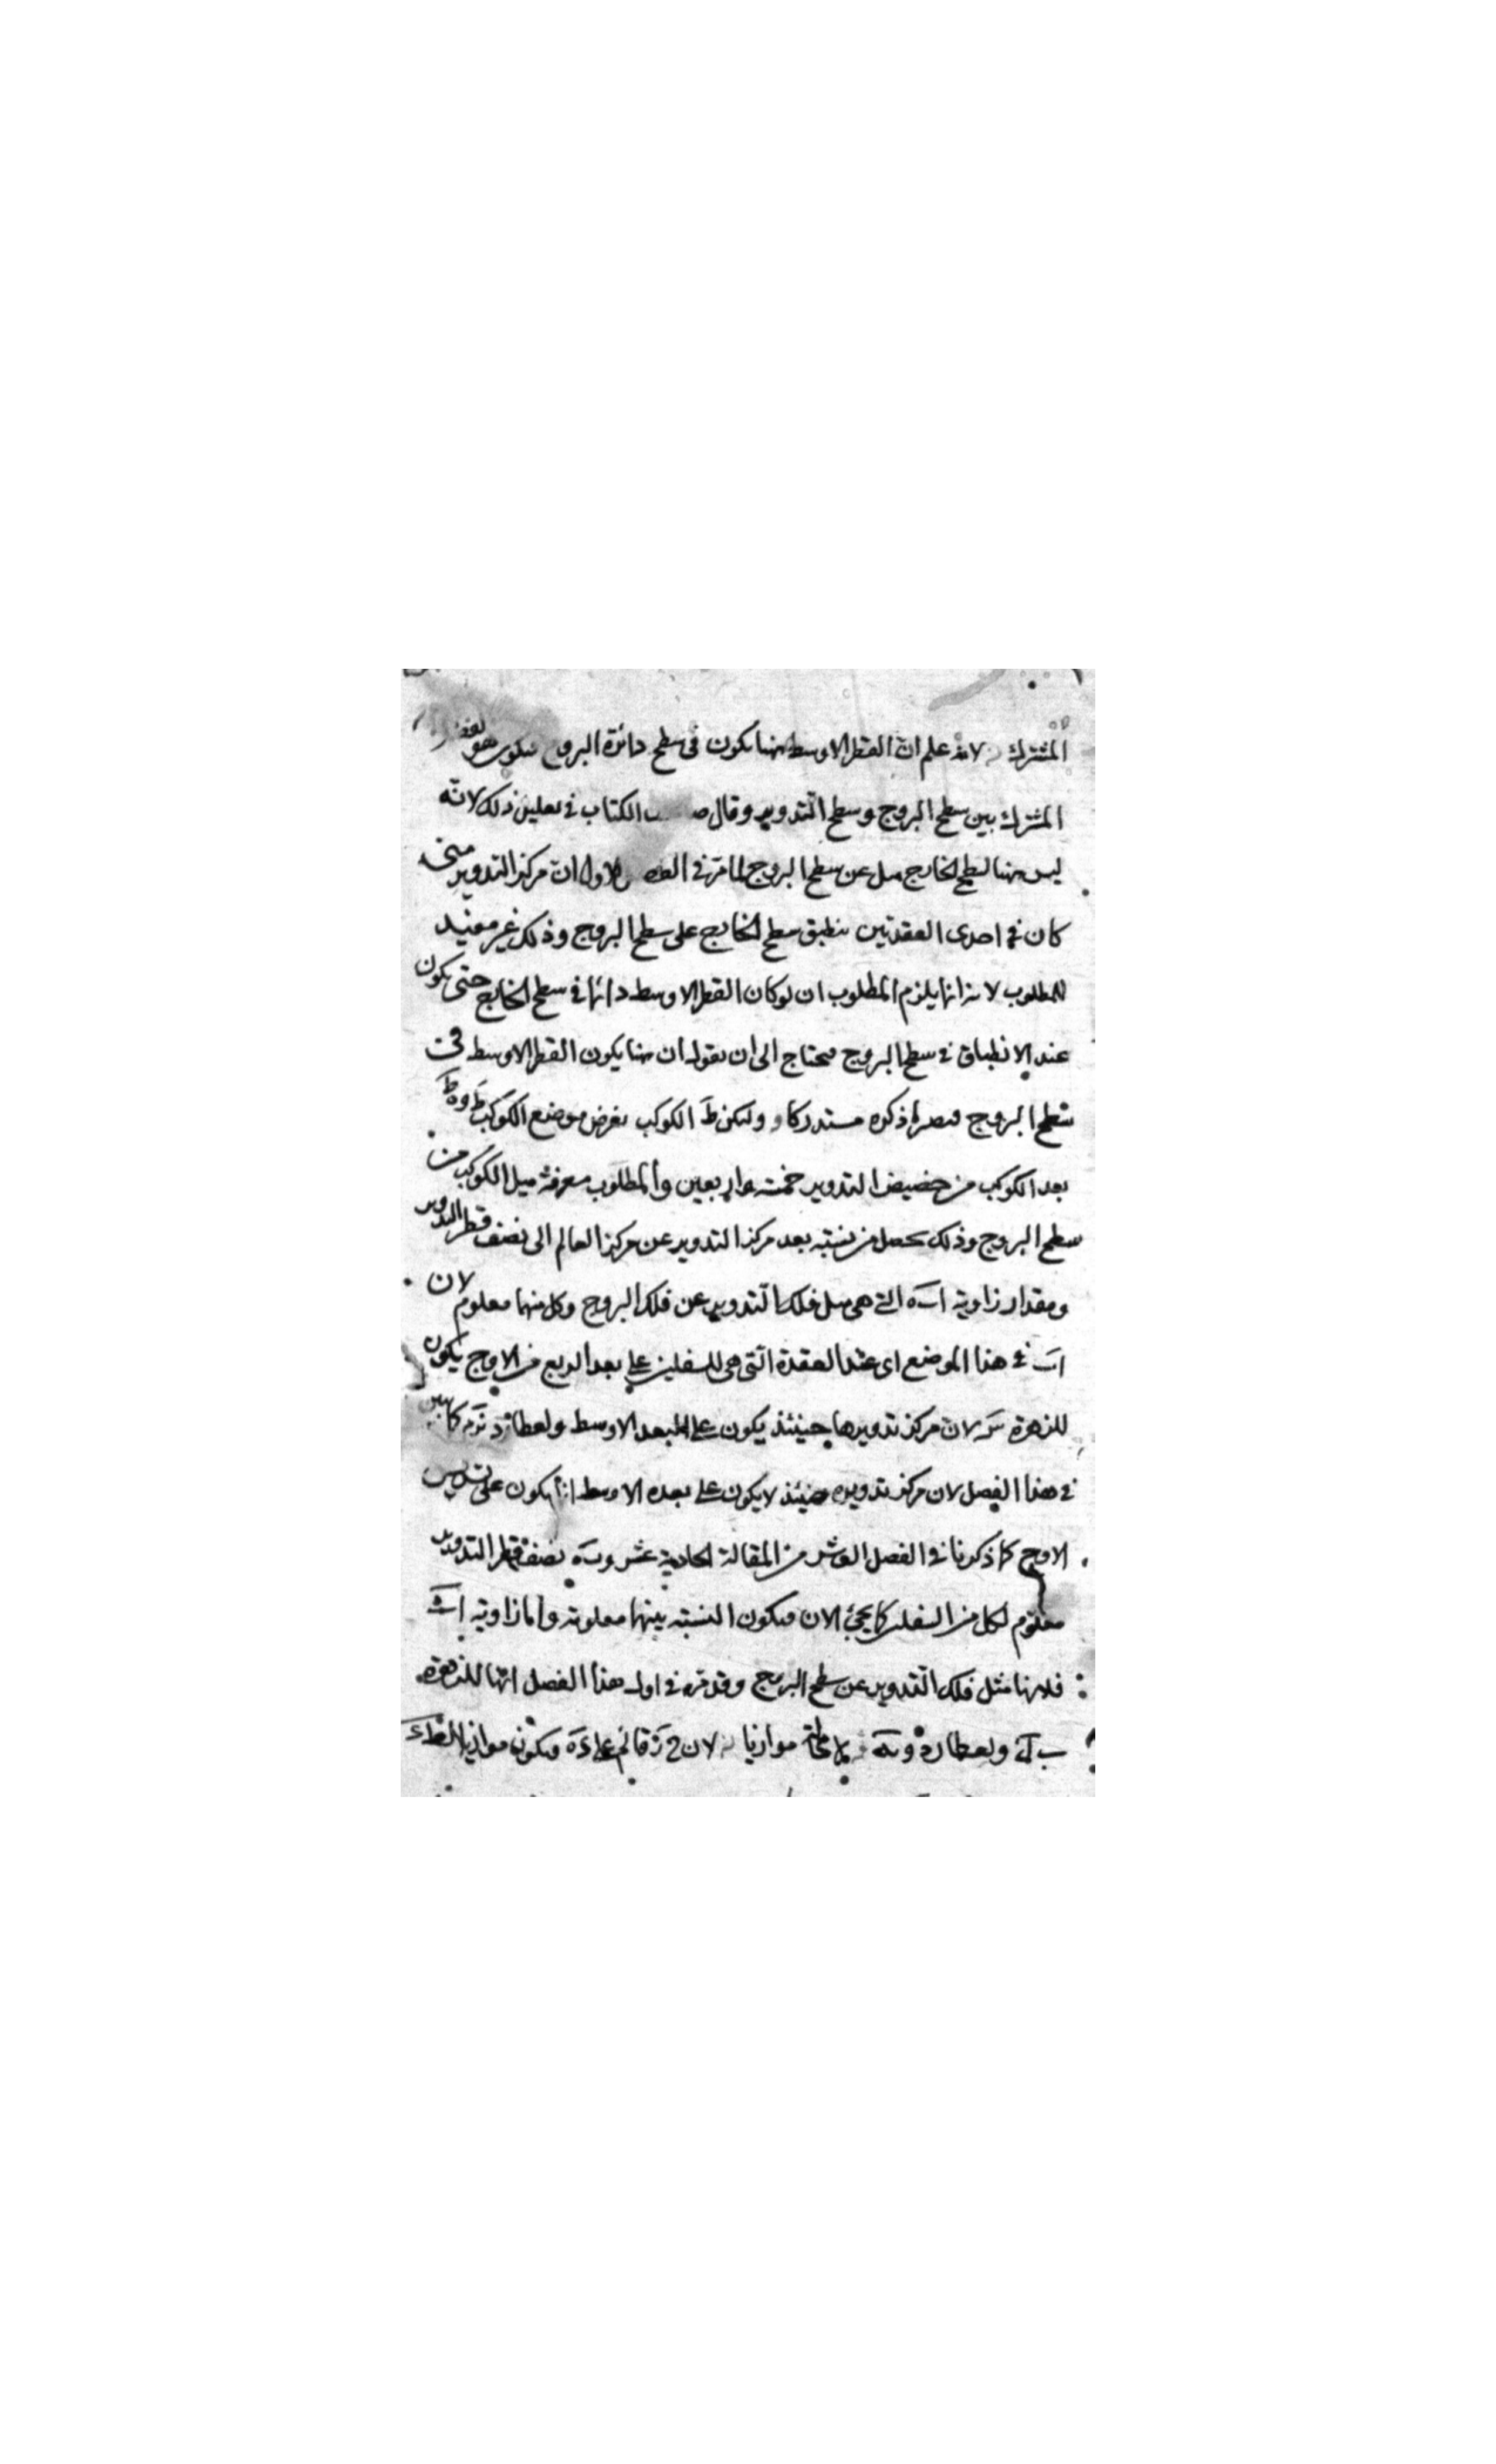 المشترك لانه علم ان القطر الاوسط ههنا يكون فى سطح دائرة البروج فيكون هو الفصل
المشترك بين سطح البروج وسطح التدوير وقال الكتاب فى تعليل ذلك لانه
ليس ههنا لسطح الخارج ميل عن سطح البروج لما مر فى الاول ان مركز التدوير متى
كان فى احدى العقدتين ينطبق سطح الخارج على سطح البروج وذلك غير مفيد
للمطلوب لانه انما يلزم المطلوب ان لو كان القطر الاوسط دائما فى سطح الخارج حتى يكون
عند الانطباق فى سطح البروج فيحتاج الى ان يقول ان ههنا يكون القطر الاوسط فى
سطح البروج فيصير ما ذكره مستدركا ولكن ط الكوكب نفرض موضع الكوكب ط و ه ط
بعد الكوكب من حضيض التدوير خمسة واربعين والمطلوب معرفة ميل الكوكب من
سطح البروج وذلك يحصل من نسبة بعد مركز التدوير عن مركز العالم الى نصف قطر التدوير
ومقدار زاوية ا ب ه التى هى ميل فلك التدوير عن فلك البروج وكل منهما معلوم لان
ا ب فى هذا الموضع اى عند العقدة التى هى للسفليين على بعد الربع من الاوج يكون
للزهرة س لان مركز تدويرها حينئذ يكون على البعد الاوسط ولعطارد كما بين
فى هذا الفصل لان مركز تدويره حينئذ لا يكون على بعده الاوسط انما يكون على تسديس
الاوج كما ذكرنا فى الفصل العاشر من المقالة الحادية عشر و ب ه نصف قطر التدوير
معلوم لكل من السفليين كما يجئ الان فيكون النسبة بينهما معلومة واما زاوية ا ب ه
فلانها مثل فلك التدوير عن سطح البروج وقد مر فى اول هذا الفصل انها للزهرة
ب ل ولعطارد و موازيا لان ح ز قائم على ه فيكون موازيا